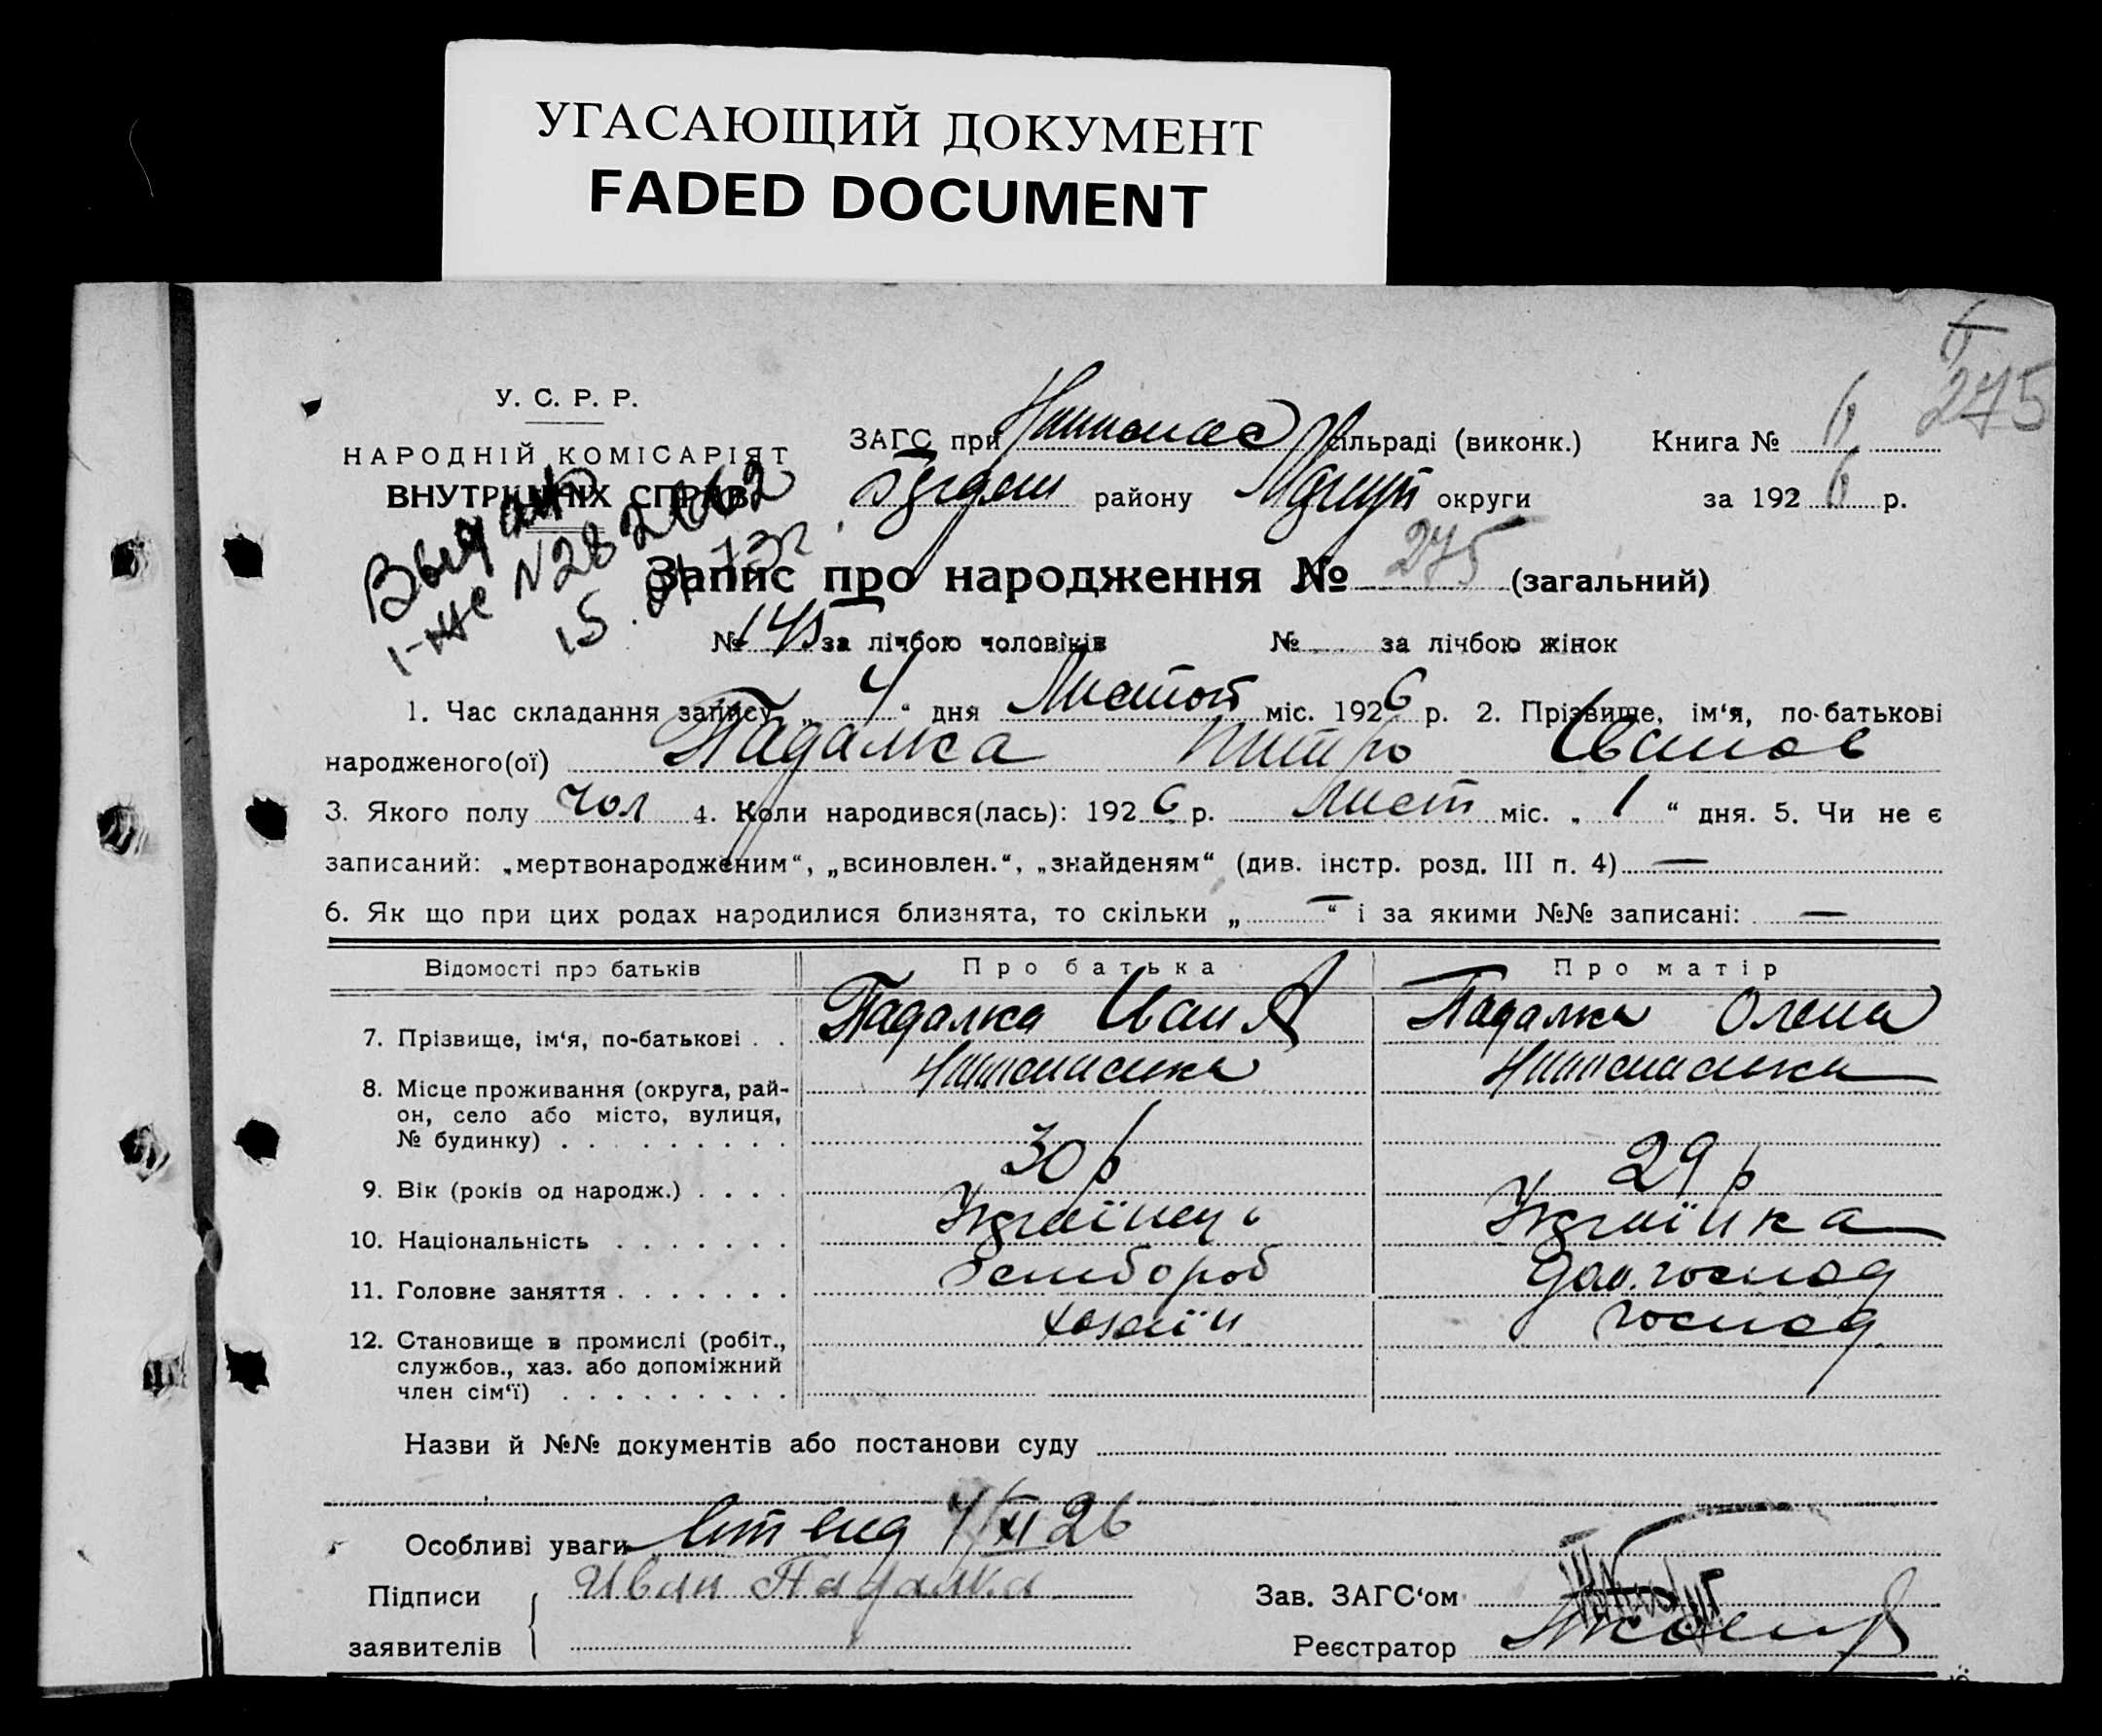 УГАСАЮЩИЙ ДОКУМЕНТ
FADED DOCUMENT
275
У. С. Р. Р.
НАРОДНІЙ КОМІСАРІЯТ
ВНУТРІШНІХ СПРАВ
ЗАГС при сільраді (виконк.) Книга № 6
району округи за 1926 р.
Выдан
N 282662
15.
Запис про народження № 275 (загальний)
№ 145 за лічбою чоловіків № за лічбою жінок
1. Час складання запису „ 4 “ дня Листоп міс. 1926 р. 2. Прізвище, ім‘я, по-батькові
народженого(ої) Падалка Иванов
3. Якого полу чол 4. Коли народився(лась): 1926 р. Лист міс. „ 1 “ дня. 5. Чи не є
записаний: „мертвонародженим“, „всиновлен.“, „знайденям“ (див. інстр. розд. III п. 4) —
6. Як що при цих родах народилися близнята, то скільки „ — “ і за якими №№ записані: —
Відомості про батьків Про батька Про матір
7. Прізвище, ім‘я, по-батькові . . Падалка Иван А Падалка Олена
8. Місце проживання (округа, рай-
он, село або місто, вулиця,
№ будинку) . . . . . . . . .
9. Вік (років од народж.) . . . . 30 р 29 р
10. Національність . . . . . . . Українець Українка
11. Головне заняття . . . . . . . хлібороб дом. господ
12. Становище в промислі (робіт., хазяїн господ
службов., хаз. або допоміжний
член сім‘ї) . . . . . . . . .
Назви й №№ документів або постанови суду
Особливі уваги 4/XI 26
Підписи Иван Падалка Зав. ЗАГС‘ом
заявителів Реєстратор